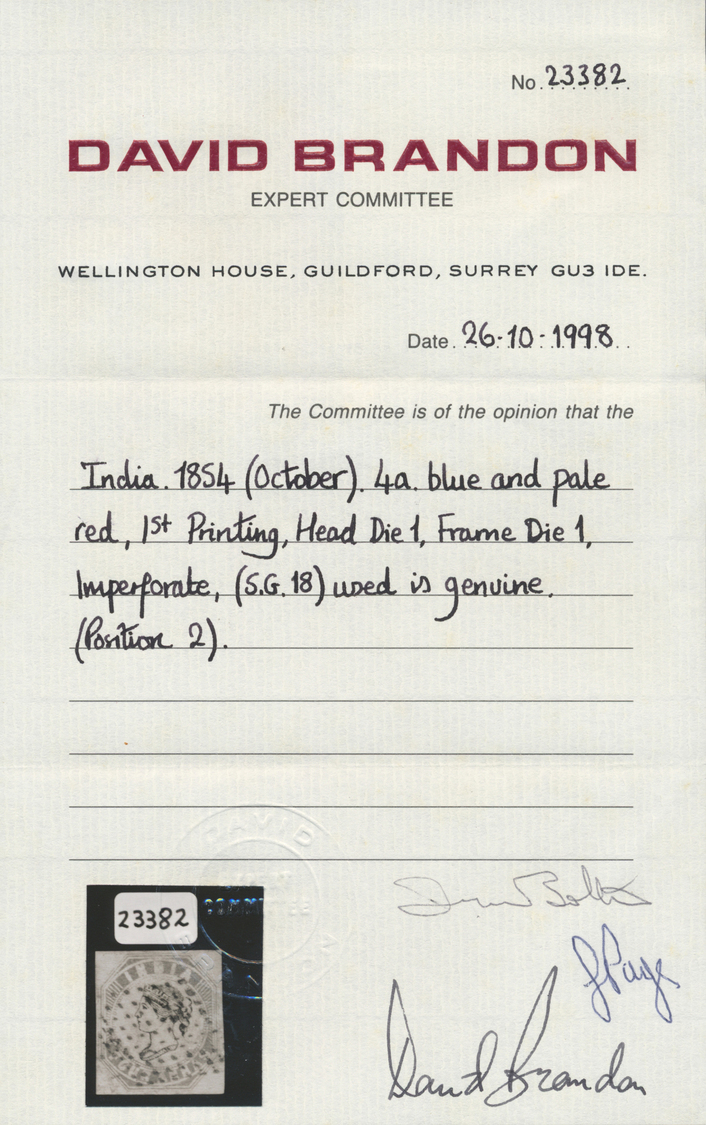 No. 23382
DAVID BRANDON
EXPERT COMMITTEE
WELLINGTON HOUSE, GUILDFORD, SURREY GU3 1DE.
Date. 26-10-1998
The Committee is of the opinion that the
India. 1854 (October). 4a. blue and pale
red, 1st Printing, Head Die 1, Frame Die 1,
Imperforate, (S.G. 18) used is genuine.
(Position 2).
DAVID
BRANDON
23382
COMMITTEE
INDIA
David Brandon